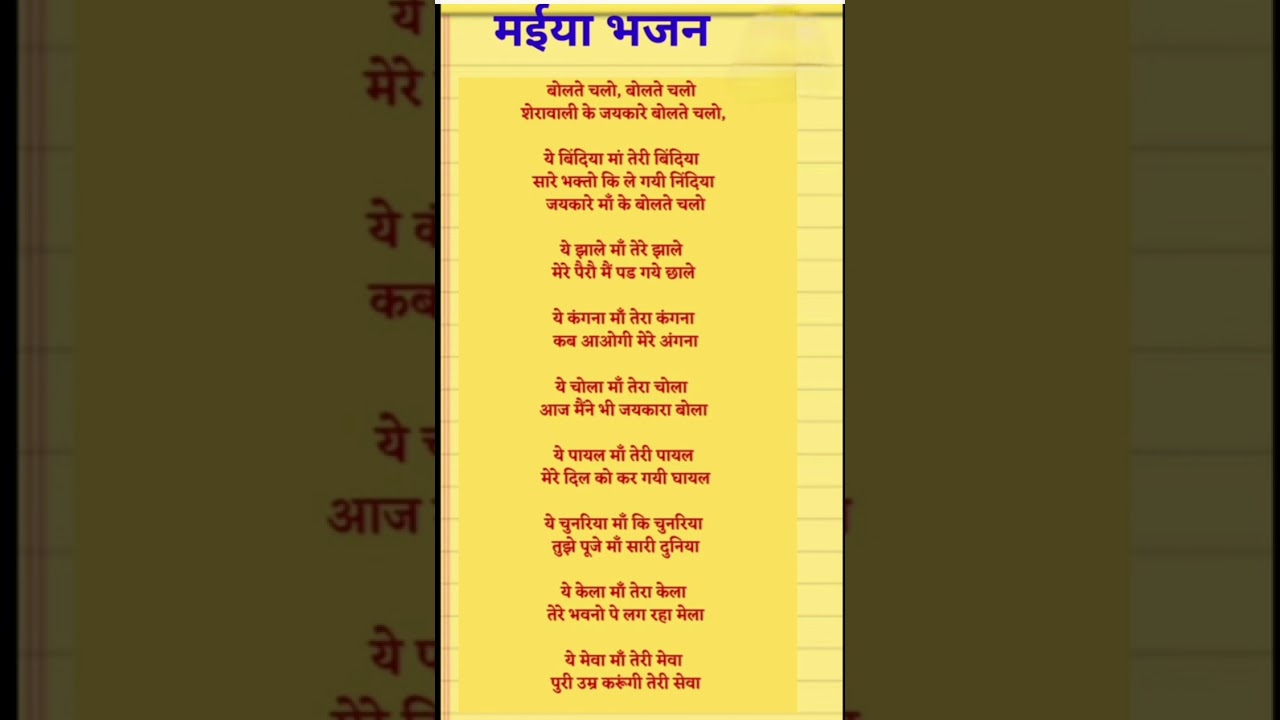 मईया भजन
बोलते चलो, बोलते चलो
शेरावाली के जयकारे बोलते चलो,
ये बिंदिया मां तेरी बिंदिया
सारे भक्तो कि ले गयी निंदिया
जयकारे माँ के बोलते चलो
ये झाले माँ तेरे झाले
मेरे पैरौ मैं पड गये छाले
ये कंगना माँ तेरा कंगना
कब आओगी मेरे अंगना
ये चोला माँ तेरा चोला
आज मैंने भी जयकारा बोला
ये पायल माँ तेरी पायल
मेरे दिल को कर गयी घायल
ये चुनरिया माँ कि चुनरिया
तुझे पूजे माँ सारी दुनिया
ये केला माँ तेरा केला
तेरे भवनो पे लग रहा मेला
ये मेवा माँ तेरी मेवा
पुरी उम्र करूंगी तेरी सेवा